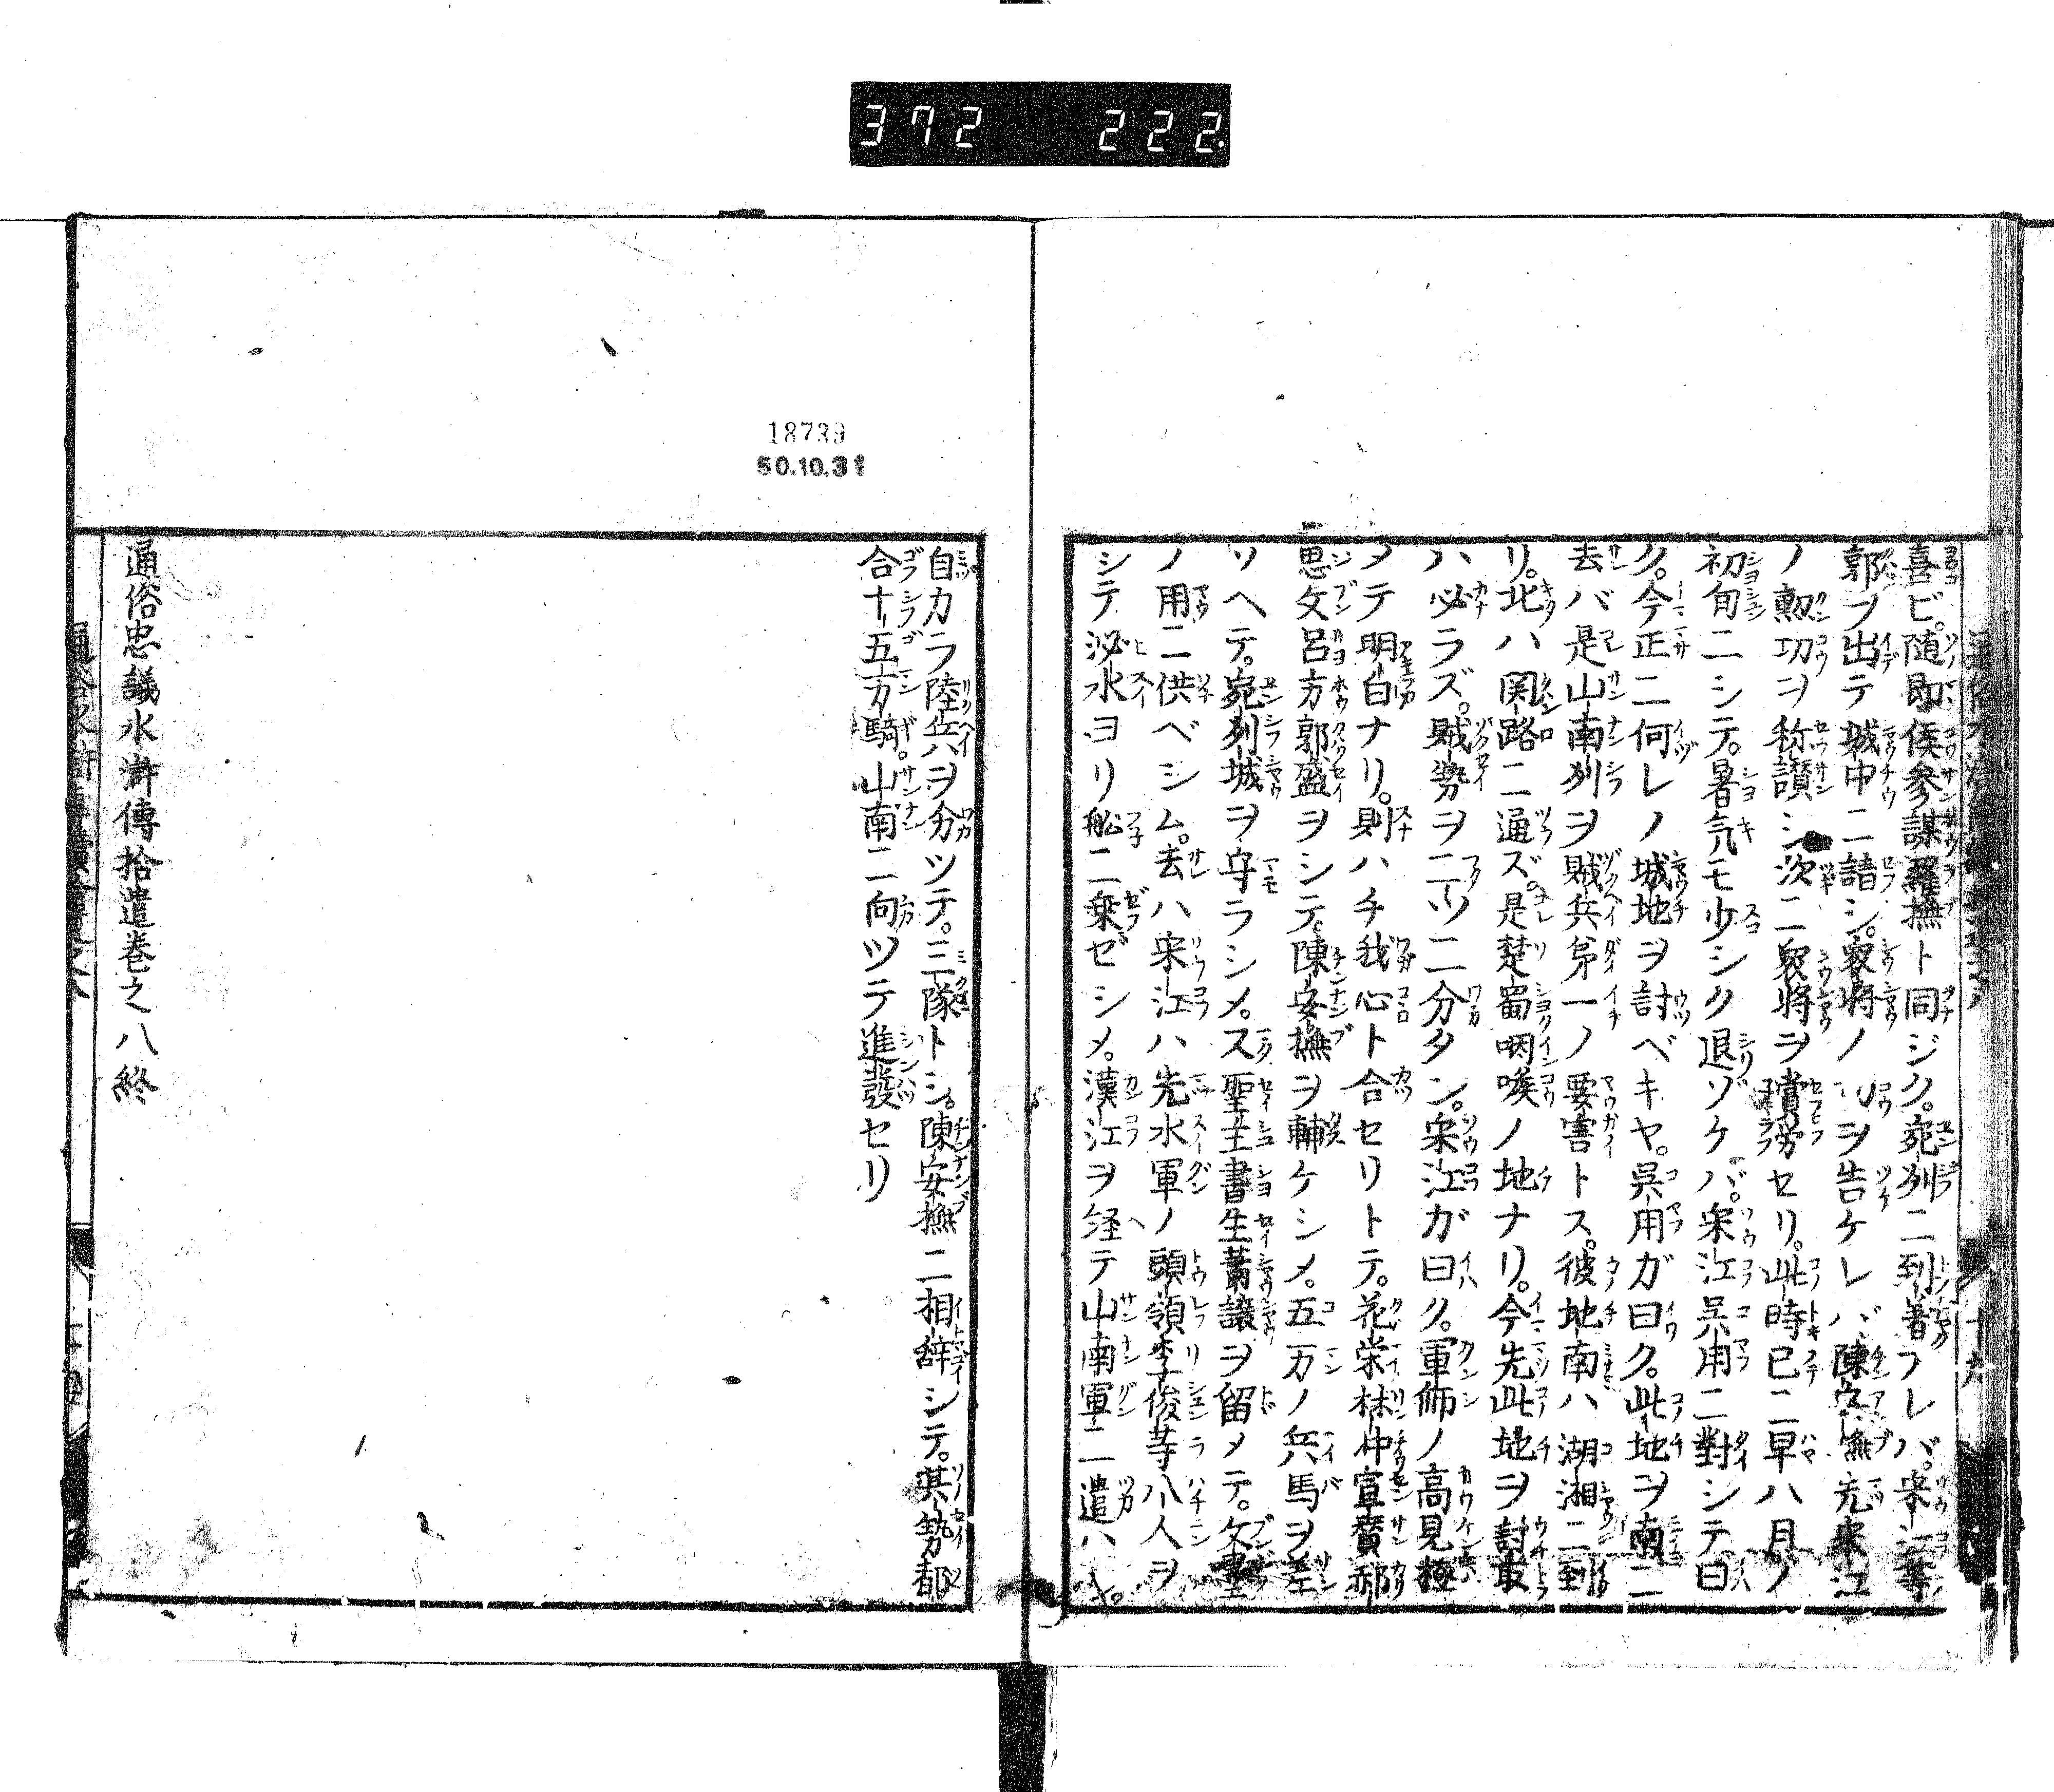 372 222
喜ビ。随即侯參謀羅撫ト同ジク。宛列ニ到着フレバ。宋江等
郭ヲ出テ城中ニ請シ。衆将ノ功ヲ告ケレバ、陳安撫先宋江
ノ勲功ヲ称讃シ次ニ衆将ヲ犒労セリ。此時已ニ早八月ノ
初旬ニシテ。暑気モ少シク退ゾケバ。宋江呉用ニ對シテ曰
ク。今正ニ何レノ城地ヲ討ベキヤ。呉用ガ曰ク。此地ヲ南ニ
去バ是山南列ヲ賊兵第一ノ要害トス。彼地南ハ湖湘ニ到
リ。北ハ関路ニ通ズ。是楚蜀咽喉ノ地ナリ。今先此地ヲ討取
ハ必ラズ。賊勢ヲ二ツニ分タン。宋江ガ曰ク。軍師ノ高見極
メテ明白ナリ。則ハチ我心ト合セリトテ。花栄林冲宣賛郝
思文呂方郭盛ヲシテ。陳安撫ヲ輔ケシメ。五万ノ兵馬ヲ差
ソヘテ。宛列城ヲ守ラシメ。又聖主書生蕭譲ヲ留メテ。文書
ノ用ニ供ベシム。去ハ宋江ハ先水軍ノ頭領李俊等八人ヲ
シテ泌水ヨリ舩ニ乗ゼシメ。漢江ヲ経テ山南軍ニ遣ハ
18739
50.10.31
自カラ陸兵ヲ分ツテ。三隊トシ。陳安撫ニ相辞シテ。其勢都
合十五万騎。山南ニ向ツテ進發セリ
通俗忠義水滸傳拾遺巻之八終